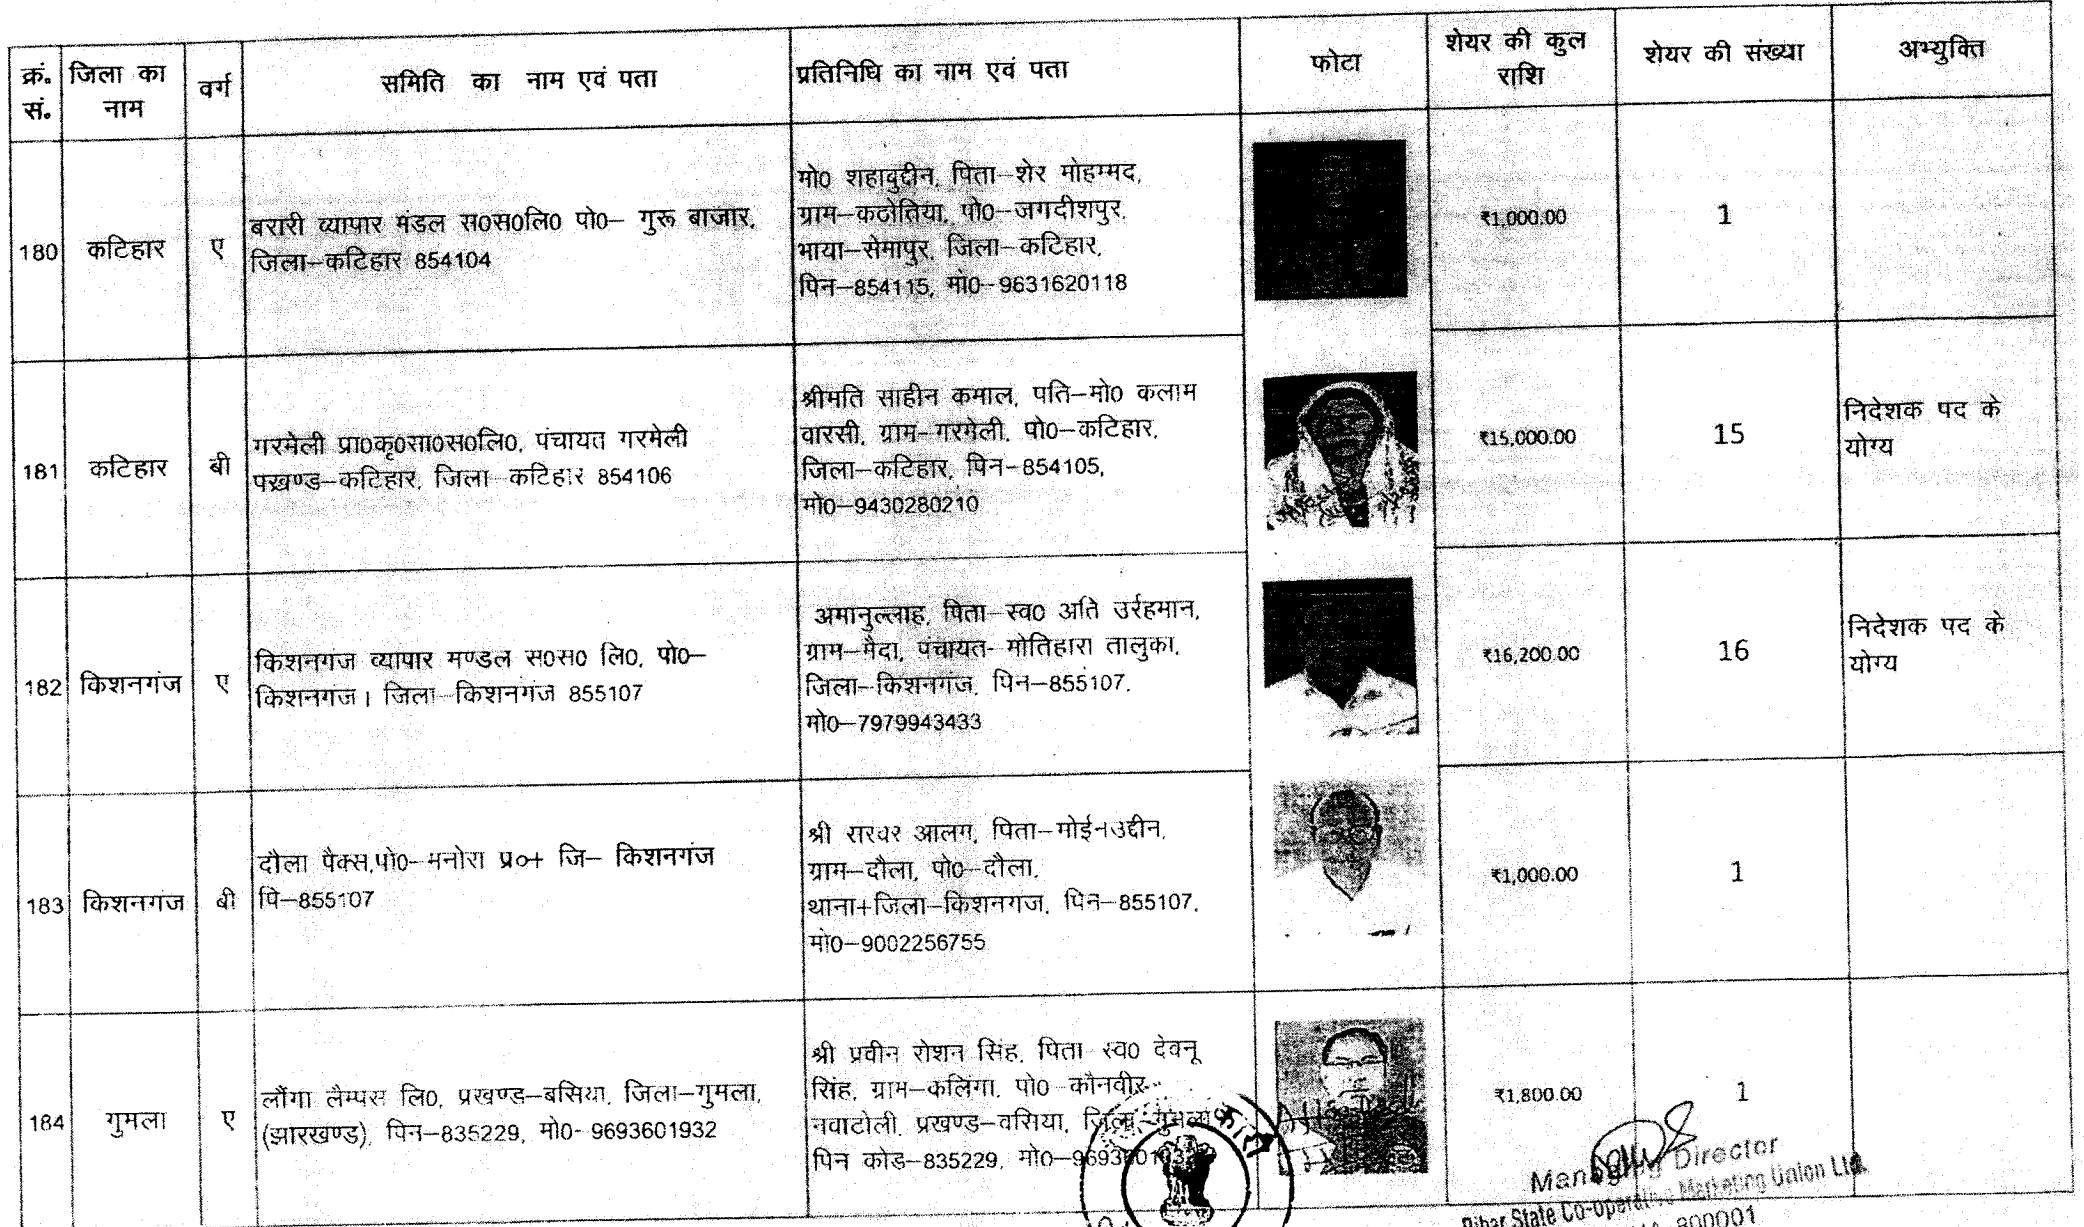 क्रं. सं.
जिला का नाम
वर्ग
समिति का नाम एवं पता
प्रतिनिधि का नाम एवं पता
फोटा
शेयर की कुल राशि
शेयर की संख्या
अभ्युक्ति
180
कटिहार
ए
बरारी व्यापार मंडल स0स0लि0 पो0– गुरू बाजार,
जिला–कटिहार 854104
मो0 शहाबुद्दीन, पिता–शेर मोहम्मद,
ग्राम–कठोतिया, पो0–जगदीशपुर,
भाया–सेमापुर, जिला–कटिहार,
पिन–854115, मो0–9631620118
₹1,000.00
1
181
कटिहार
बी
गरमेली प्रा0कृ0सा0स0लि0, पंचायत गरमेली
पखण्ड–कटिहार, जिला–कटिहार 854106
श्रीमति साहीन कमाल, पति–मो0 कलाम
वारसी, ग्राम–गरगेली, पो0–कटिहार,
जिला–कटिहार, पिन–854105,
मो0–9430280210
₹15,000.00
15
निदेशक पद के
योग्य
182
किशनगंज
ए
किशनगंज व्यापार मण्डल स0स0 लि0, पो0–
किशनगंज। जिला–किशनगंज 855107
अमानुल्लाह, पिता–स्व0 अति उर्रहमान,
ग्राम–मैदा, पंचायत- मोतिहारा तालुका,
जिला–किशनगंज, पिन–855107.
मो0–7979943433
₹16,200.00
16
निदेशक पद के
योग्य
183
किशनगंज
बी
दौला पैक्स,पो0–मनोरा प्र०+ जि– किशनगंज
पि–855107
श्री सरवर आलग, पिता–मोईनउद्दीन,
ग्राम–दौला, पो0–दौला,
थाना+जिला–किशनगज, पिन–855107,
मो0–9002256755
₹1,000.00
1
184
गुमला
ए
लौंगा लैम्पस लि0, प्रखण्ड–बसिया, जिला–गुमला,
(झारखण्ड), पिन–835229, मो0- 9693601932
श्री प्रवीन रोशन सिंह, पिता–स्व0 देवनू
सिंह, ग्राम–कलिंगा, पो0–कौनवीर-
नवाटोली, प्रखण्ड–वसिया, जिला–गुमला
पिन कोड–835229, मो0–
₹1,800.00
1
Managing Director
Bihar State Co-operative Marketing Union Ltd.
800001